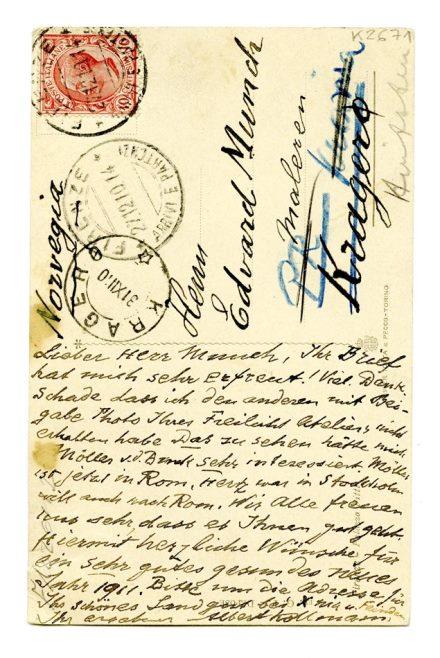 K2671
Norvegia
Herrn
Edvard Munch
Maleren
Kragerö
FIRENZE
27.12.10.14
KRAGERØ
31 XII 10
Lieber Herr Munch, Ihr Brief
hat mich sehr erfreut! Viel Dank
Schade dass ich den anderen mit Bei-
gabe Photo Ihres Freilicht Ateliers nicht
erhalten habe Das zu sehen hätte mich
sehr interessiert. Möller
ist jetzt in Rom, Hertz war in Stockholm
will auch nach Rom. Wir Alle freuen
uns sehr dass es Ihnen gut geht.
Hiermit herzliche Wünsche für
ein sehr gutes gesundes neues
Jahr 1911. Bitte um die Adresse für
Ihr schönes Landgut bei
Ihr ergebener Albert Kollmann